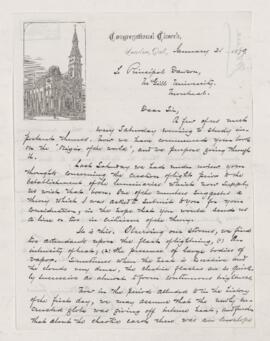 Congregational Church,
London, Ont., January 21 1879
To Principal Dawson,
McGill University,
Montreal.
Dear Sir,
A few of us meet
every Saturday evening to study im-
portant themes. Now we have commenced your book
on the "Origin of the World", and we purpose going through
it.
Last Saturday we had under review your
thoughts concerning the creation of light prior to the
establishment of the luminaries which now supply
us with that boon. One of the members suggested a
theory which I was asked to submit to you for your
consideration, in the hope that you would send us
a line or two in criticism of the theory.
It is this. Observing our storms, we find
as attendants upon the flash of lightning, (1) the
intensity of heat, (2) the presence of large bodies of
vapour. Sometimes when the heat is excessive and
the clouds very dense, the electric flashes are so quick-
ly successive as almost to form continuous brightness.
Now in the period alluded to in the history
of the first day, we may assume that the newly in-
crusted globe was giving off intense heat, and
that along the chaotic earth there was an envelope